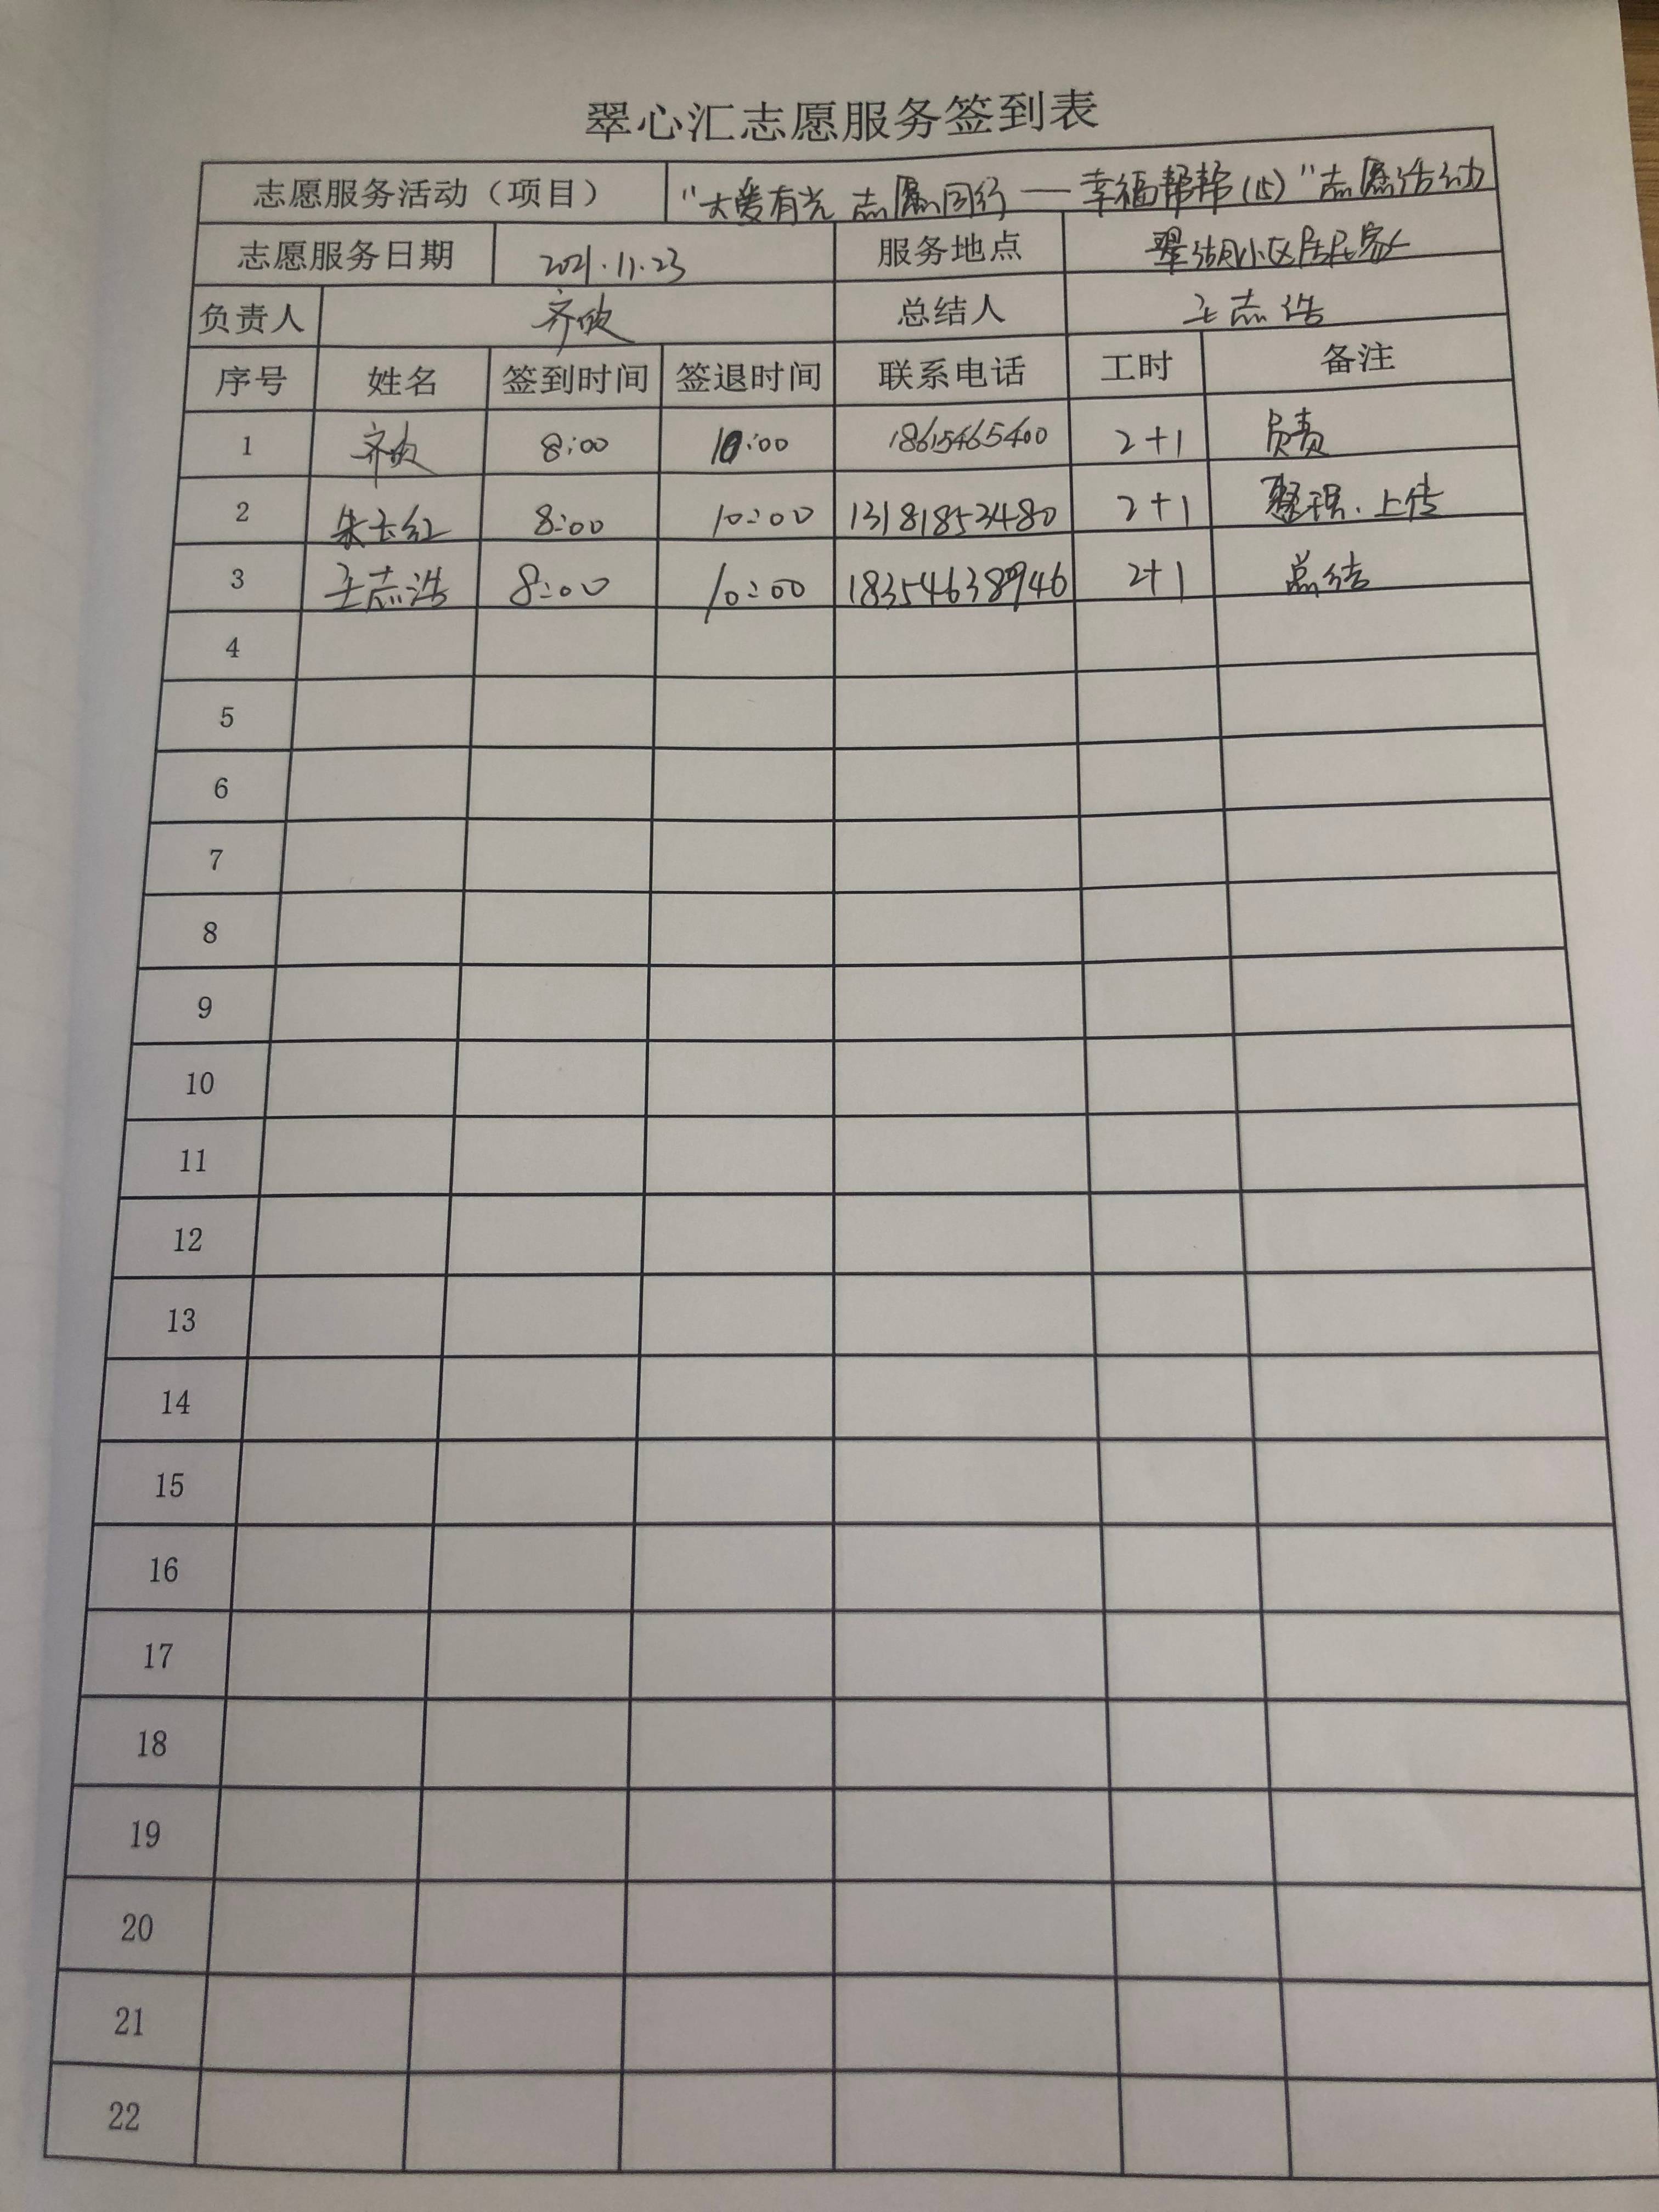 翠心汇志愿服务签到表
志愿服务活动（项目） "大爱有光 志愿同行——幸福帮帮(15)"志愿活动
志愿服务日期 2021.11.23 服务地点 翠湖小区居民家
负责人 齐欣 总结人 王志浩
序号 姓名 签到时间 签退时间 联系电话 工时 备注
1 齐欣 8:00 10:00 18615465400 2+1 负责
2 朱玉红 8:00 10:00 13181853480 2+1 整理、上传
3 王志浩 8:00 10:00 2+1 总结
4
5
6
7
8
9
10
11
12
13
14
15
16
17
18
19
20
21
22